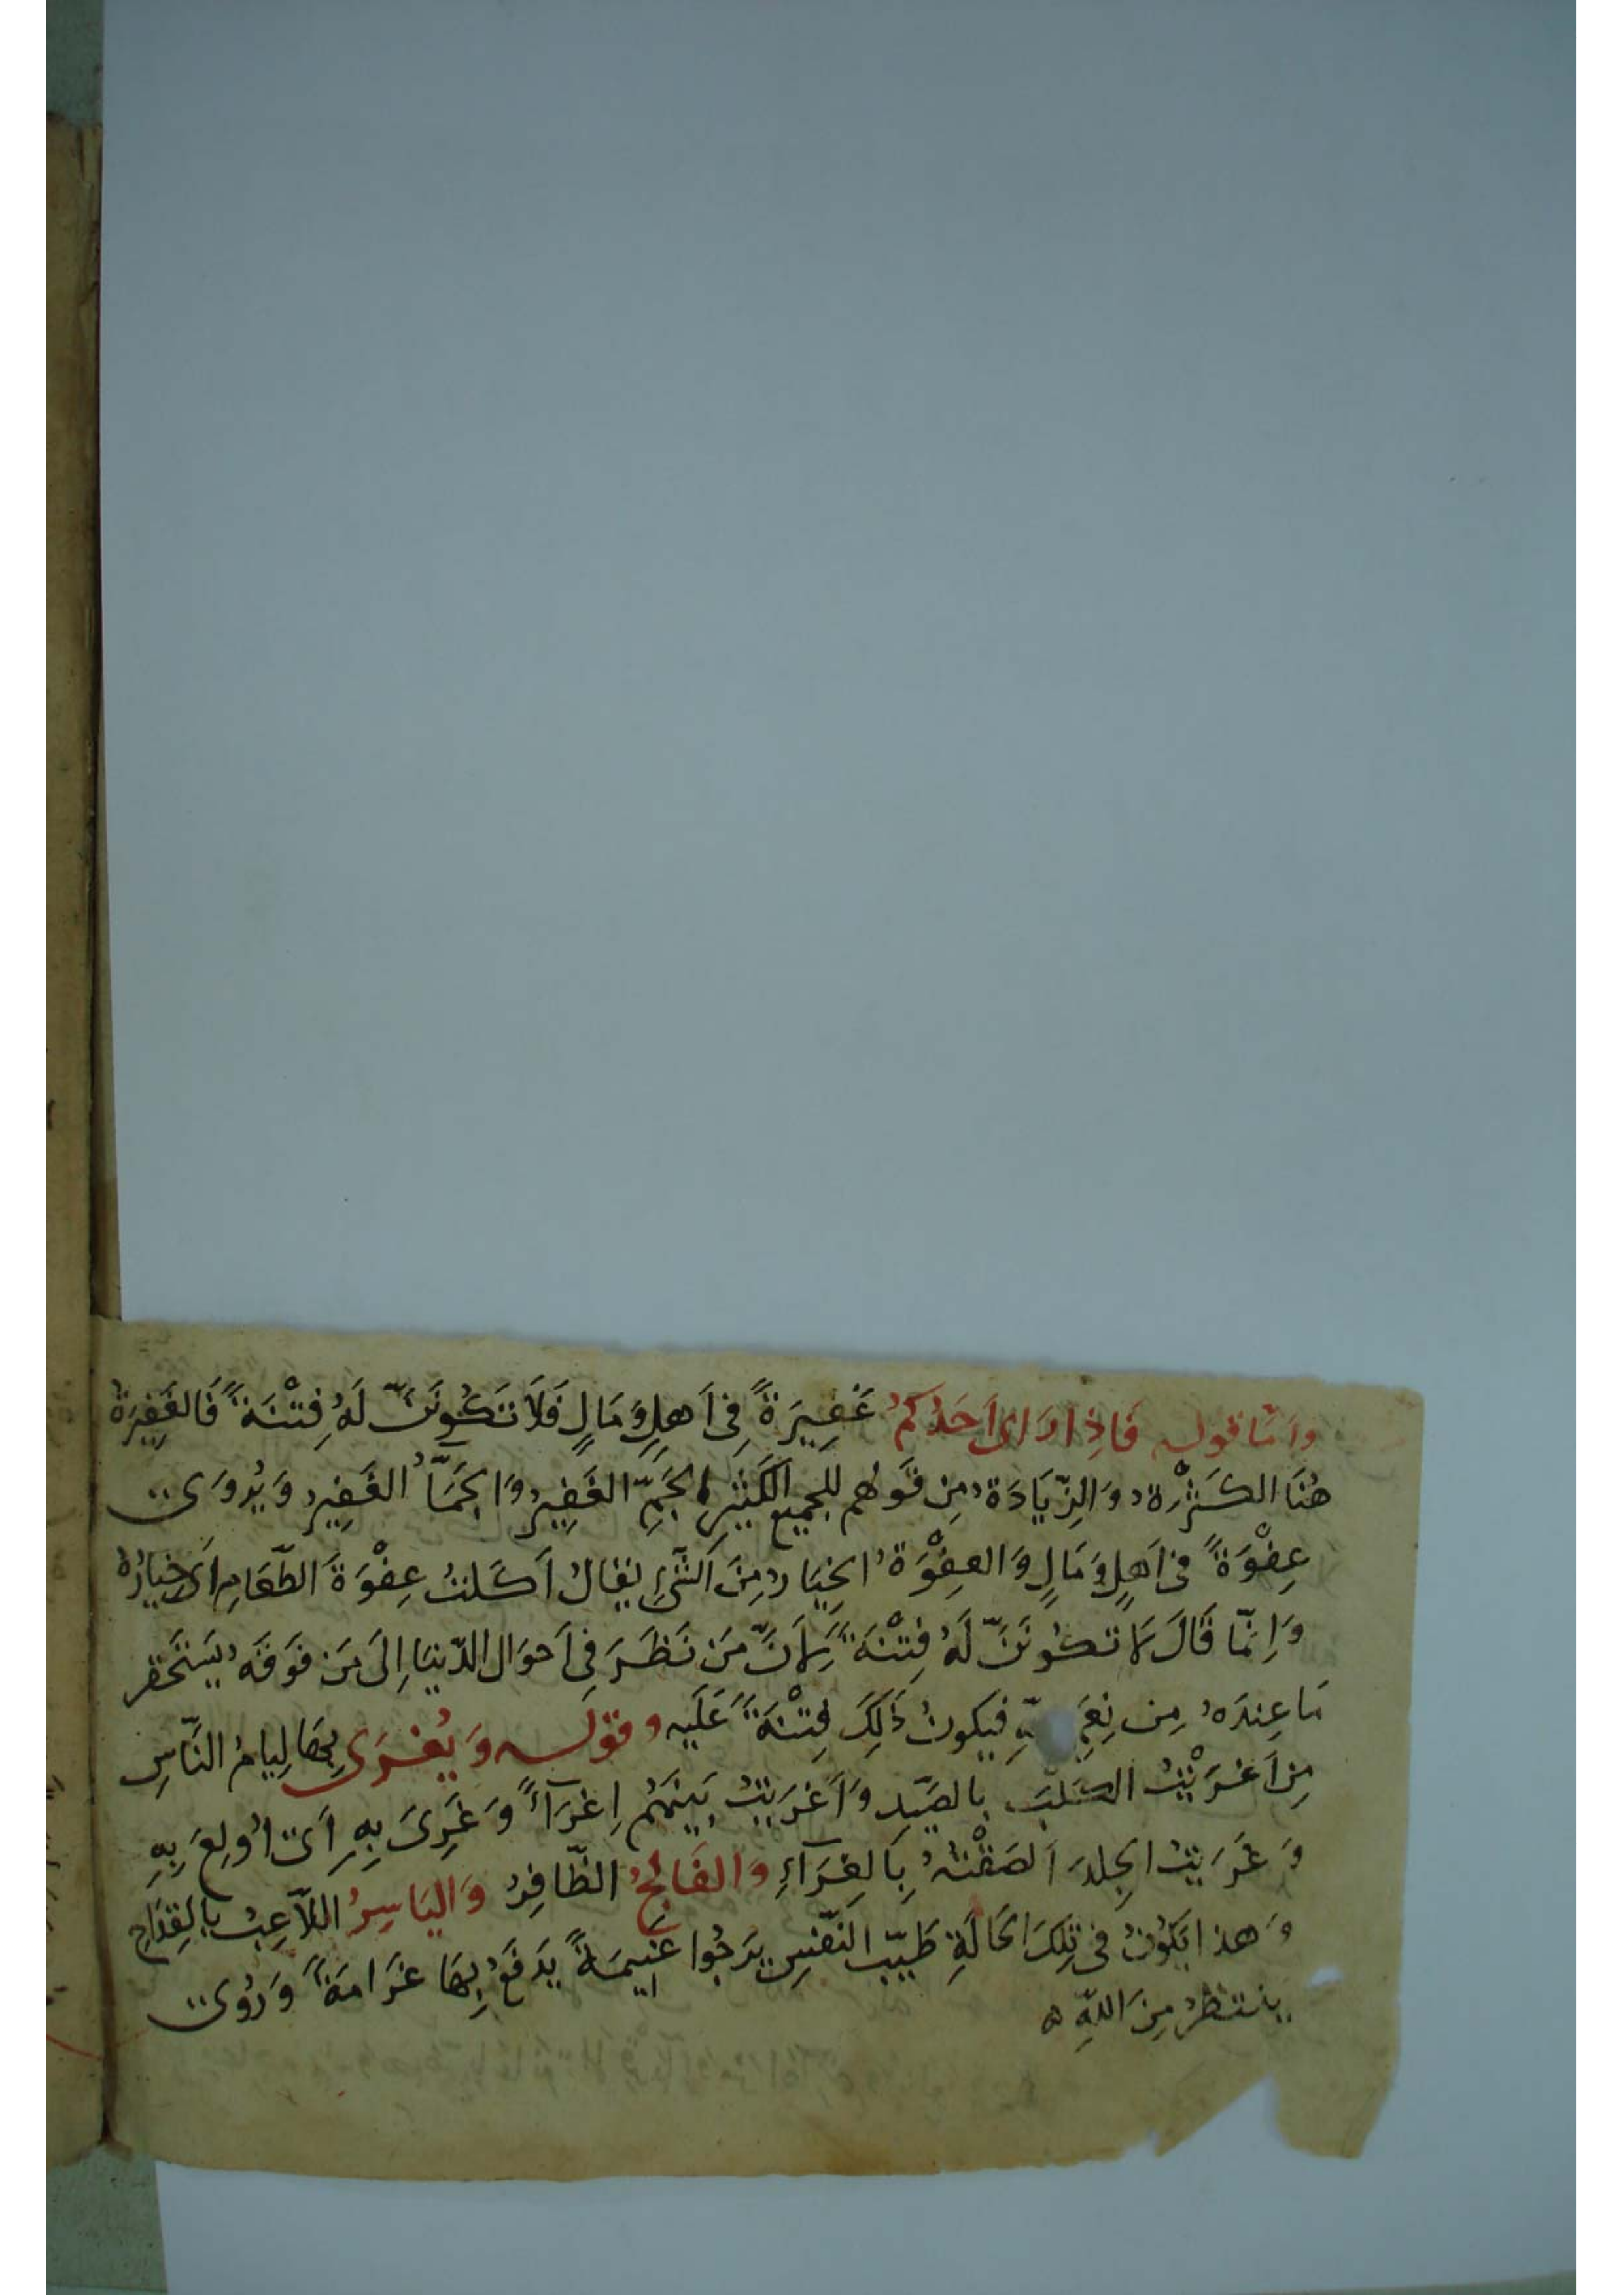 وَاَمَّا قوله فَاِذَا رَاى اَحَدُكُم غَفِيرَةً فِى اَهلٍ وَ مَالٍ فَلَا تَكُونَنَّ لَهُ فِتْنَةً فَالغَفِيرَةُ
هُنَا الكَثْرَةُ وَ الزِّيَادَةُ مِن قَولهم للجميعِ الكَثِيرِ الجَمِّ الغَفِيرِ وَ الجَمَّاُ الغَفِيرِ وَ يُروَى
عِفْوَةً فى اَهلٍ وَ مَالٍ وَ العِفْوَةُ الخِيَارُ مِنَ الشَّىءِ يقالُ اَكَلتُ عِفْوَةَ الطَّعَامِ اَى خِيَارَهُ
وَ اِنَّمَا قَالَ لا تكُونَنَّ لَهُ فِتْنَةً لِاَنَّ مَن نَظَرَ فِى اَحوَالِ الدّنيَا اِلَى مَن فَوقَهُ يَستَحقر
مَا عِندَهُ مِن نِعَمِ فيكونُ ذَلِكَ فِتْنَةً عَلَيه وقوله وَ يُغرَى بِهَا لِيامُ النَّاسِ
مِن اَغرَيْتُ الكَلبَ بالصَيدِ وَ اَغرَيتُ بَينَهُم اِغرَآءً وَ غَرِىَ بِهِ اَى اُولِعَ بِهِ
وَ غَرَيتُ الجِلدَ اَلصَقْتُهُ بِالغِرَآءِ وَ الفَالِجُ الظَّافِرُ وَ اليَاسِرُ اللَّاعِبُ بالقِدَاحِ
وَ هذا يَكُونُ فى تِلكَ الحَالَةِ طَيِّبَ النَّفسِ يَرجُوا غَنِيمَةً يَدفَعُ بِهَا غَرَامَةً وَ رُوِىَ
ينتظرُ مِنَ اللّهِ ه